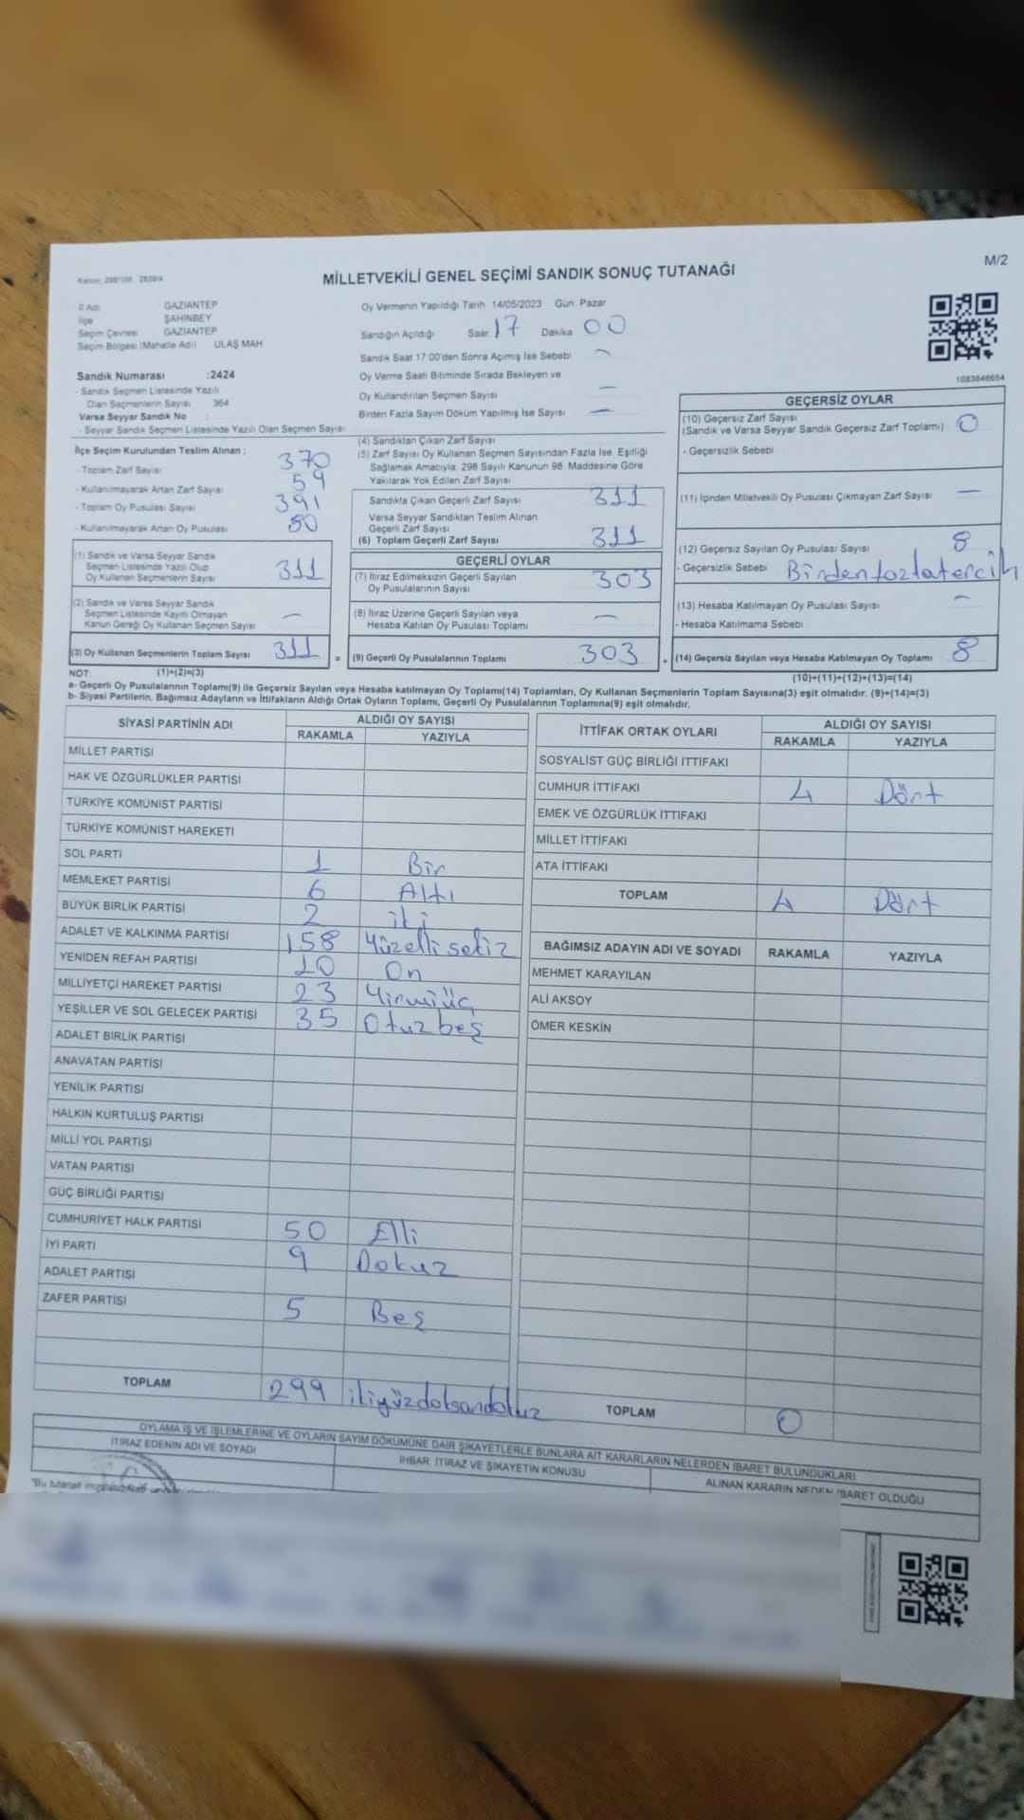 MİLLETVEKİLİ GENEL SEÇİMİ SANDIK SONUÇ TUTANAĞI
M/2
İl Adı GAZİANTEP
İlçe ŞAHİNBEY
Seçim Çevresi GAZİANTEP
Seçim Bölgesi (Mahalle Adı) ULAŞ MAH
Oy Vermenin Yapıldığı Tarih 14/05/2023 Gün: Pazar
Sandığın Açıldığı Saat 17 Dakika 00
Sandık Saat 17:00'den Sonra Açılmış İse Sebebi —
Oy Verme Saati Bitiminde Sırada Bekleyen ve
Oy Kullandırılan Seçmen Sayısı —
Birden Fazla Sayım Döküm Yapılmış İse Sayısı —
Sandık Numarası :2424
- Sandık Seçmen Listesinde Yazılı
Olan Seçmenlerin Sayısı 364
Varsa Seyyar Sandık No
- Seyyar Sandık Seçmen Listesinde Yazılı Olan Seçmen Sayısı
İlçe Seçim Kurulundan Teslim Alınan :
- Toplam Zarf Sayısı 370
- Kullanılmayarak Artan Zarf Sayısı 59
- Toplam Oy Pusulası Sayısı 391
- Kullanılmayarak Artan Oy Pusulası 80
(1) Sandık ve Varsa Seyyar Sandık
Seçmen Listesinde Yazılı Olup
Oy Kullanan Seçmenlerin Sayısı 311
(2) Sandık ve Varsa Seyyar Sandık
Seçmen Listesinde Kayıtlı Olmayan
Kanun Gereği Oy Kullanan Seçmen Sayısı —
(3) Oy Kullanan Seçmenlerin Toplam Sayısı 311 =
(4) Sandıktan Çıkan Zarf Sayısı
(5) Zarf Sayısı Oy Kullanan Seçmen Sayısından Fazla İse, Eşitliği
Sağlamak Amacıyla: 298 Sayılı Kanunun 98. Maddesine Göre
Yakılarak Yok Edilen Zarf Sayısı
Sandıkta Çıkan Geçerli Zarf Sayısı 311
Varsa Seyyar Sandıktan Teslim Alınan
Geçerli Zarf Sayısı
(6) Toplam Geçerli Zarf Sayısı 311
GEÇERLİ OYLAR
(7) İtiraz Edilmeksizin Geçerli Sayılan
Oy Pusulalarının Sayısı 303
(8) İtiraz Üzerine Geçerli Sayılan veya
Hesaba Katılan Oy Pusulası Toplamı —
(9) Geçerli Oy Pusulalarının Toplamı 303 +
1083846654
GEÇERSİZ OYLAR
(10) Geçersiz Zarf Sayısı
(Sandık ve Varsa Seyyar Sandık Geçersiz Zarf Toplamı) 0
- Geçersizlik Sebebi
(11) İçinden Milletvekili Oy Pusulası Çıkmayan Zarf Sayısı —
(12) Geçersiz Sayılan Oy Pusulası Sayısı 8
- Geçersizlik Sebebi Birden fazla tercih
(13) Hesaba Katılmayan Oy Pusulası Sayısı —
- Hesaba Katılmama Sebebi
(14) Geçersiz Sayılan veya Hesaba Katılmayan Oy Toplamı 8
NOT: (1)+(2)=(3)
(10)+(11)+(12)+(13)=(14)
a- Geçerli Oy Pusulalarının Toplamı(9) ile Geçersiz Sayılan veya Hesaba katılmayan Oy Toplamı(14) Toplamları, Oy Kullanan Seçmenlerin Toplam Sayısına(3) eşit olmalıdır. (9)+(14)=(3)
b- Siyasi Partilerin, Bağımsız Adayların ve İttifakların Aldığı Ortak Oyların Toplamı, Geçerli Oy Pusulalarının Toplamına(9) eşit olmalıdır.
SİYASİ PARTİNİN ADI ALDIĞI OY SAYISI
RAKAMLA YAZIYLA
MİLLET PARTİSİ
HAK VE ÖZGÜRLÜKLER PARTİSİ
TÜRKİYE KOMÜNİST PARTİSİ
TÜRKİYE KOMÜNİST HAREKETİ
SOL PARTİ 1 Bir
MEMLEKET PARTİSİ 6 Altı
BÜYÜK BİRLİK PARTİSİ 2 iki
ADALET VE KALKINMA PARTİSİ 158 Yüzellisekiz
YENİDEN REFAH PARTİSİ 10 On
MİLLİYETÇİ HAREKET PARTİSİ 23 Yirmiüç
YEŞİLLER VE SOL GELECEK PARTİSİ 35 Otuzbeş
ADALET BİRLİK PARTİSİ
ANAVATAN PARTİSİ
YENİLİK PARTİSİ
HALKIN KURTULUŞ PARTİSİ
MİLLİ YOL PARTİSİ
VATAN PARTİSİ
GÜÇ BİRLİĞİ PARTİSİ
CUMHURİYET HALK PARTİSİ 50 Elli
İYİ PARTİ 9 Dokuz
ADALET PARTİSİ
ZAFER PARTİSİ 5 Beş
TOPLAM 299 ikiyüzdoksandokuz
İTTİFAK ORTAK OYLARI ALDIĞI OY SAYISI
RAKAMLA YAZIYLA
SOSYALİST GÜÇ BİRLİĞİ İTTİFAKI
CUMHUR İTTİFAKI 4 Dört
EMEK VE ÖZGÜRLÜK İTTİFAKI
MİLLET İTTİFAKI
ATA İTTİFAKI
TOPLAM 4 Dört
BAĞIMSIZ ADAYIN ADI VE SOYADI RAKAMLA YAZIYLA
MEHMET KARAYILAN
ALİ AKSOY
ÖMER KESKİN
TOPLAM 0
OYLAMA İŞ VE İŞLEMLERİNE VE OYLARIN SAYIM DÖKÜMÜNE DAİR ŞİKAYETLERLE BUNLARA AİT KARARLARIN NELERDEN İBARET BULUNDUKLARI
İTİRAZ EDENİN ADI VE SOYADI
İHBAR, İTİRAZ VE ŞİKAYETİN KONUSU
ALINAN KARARIN NEDEN İBARET OLDUĞU